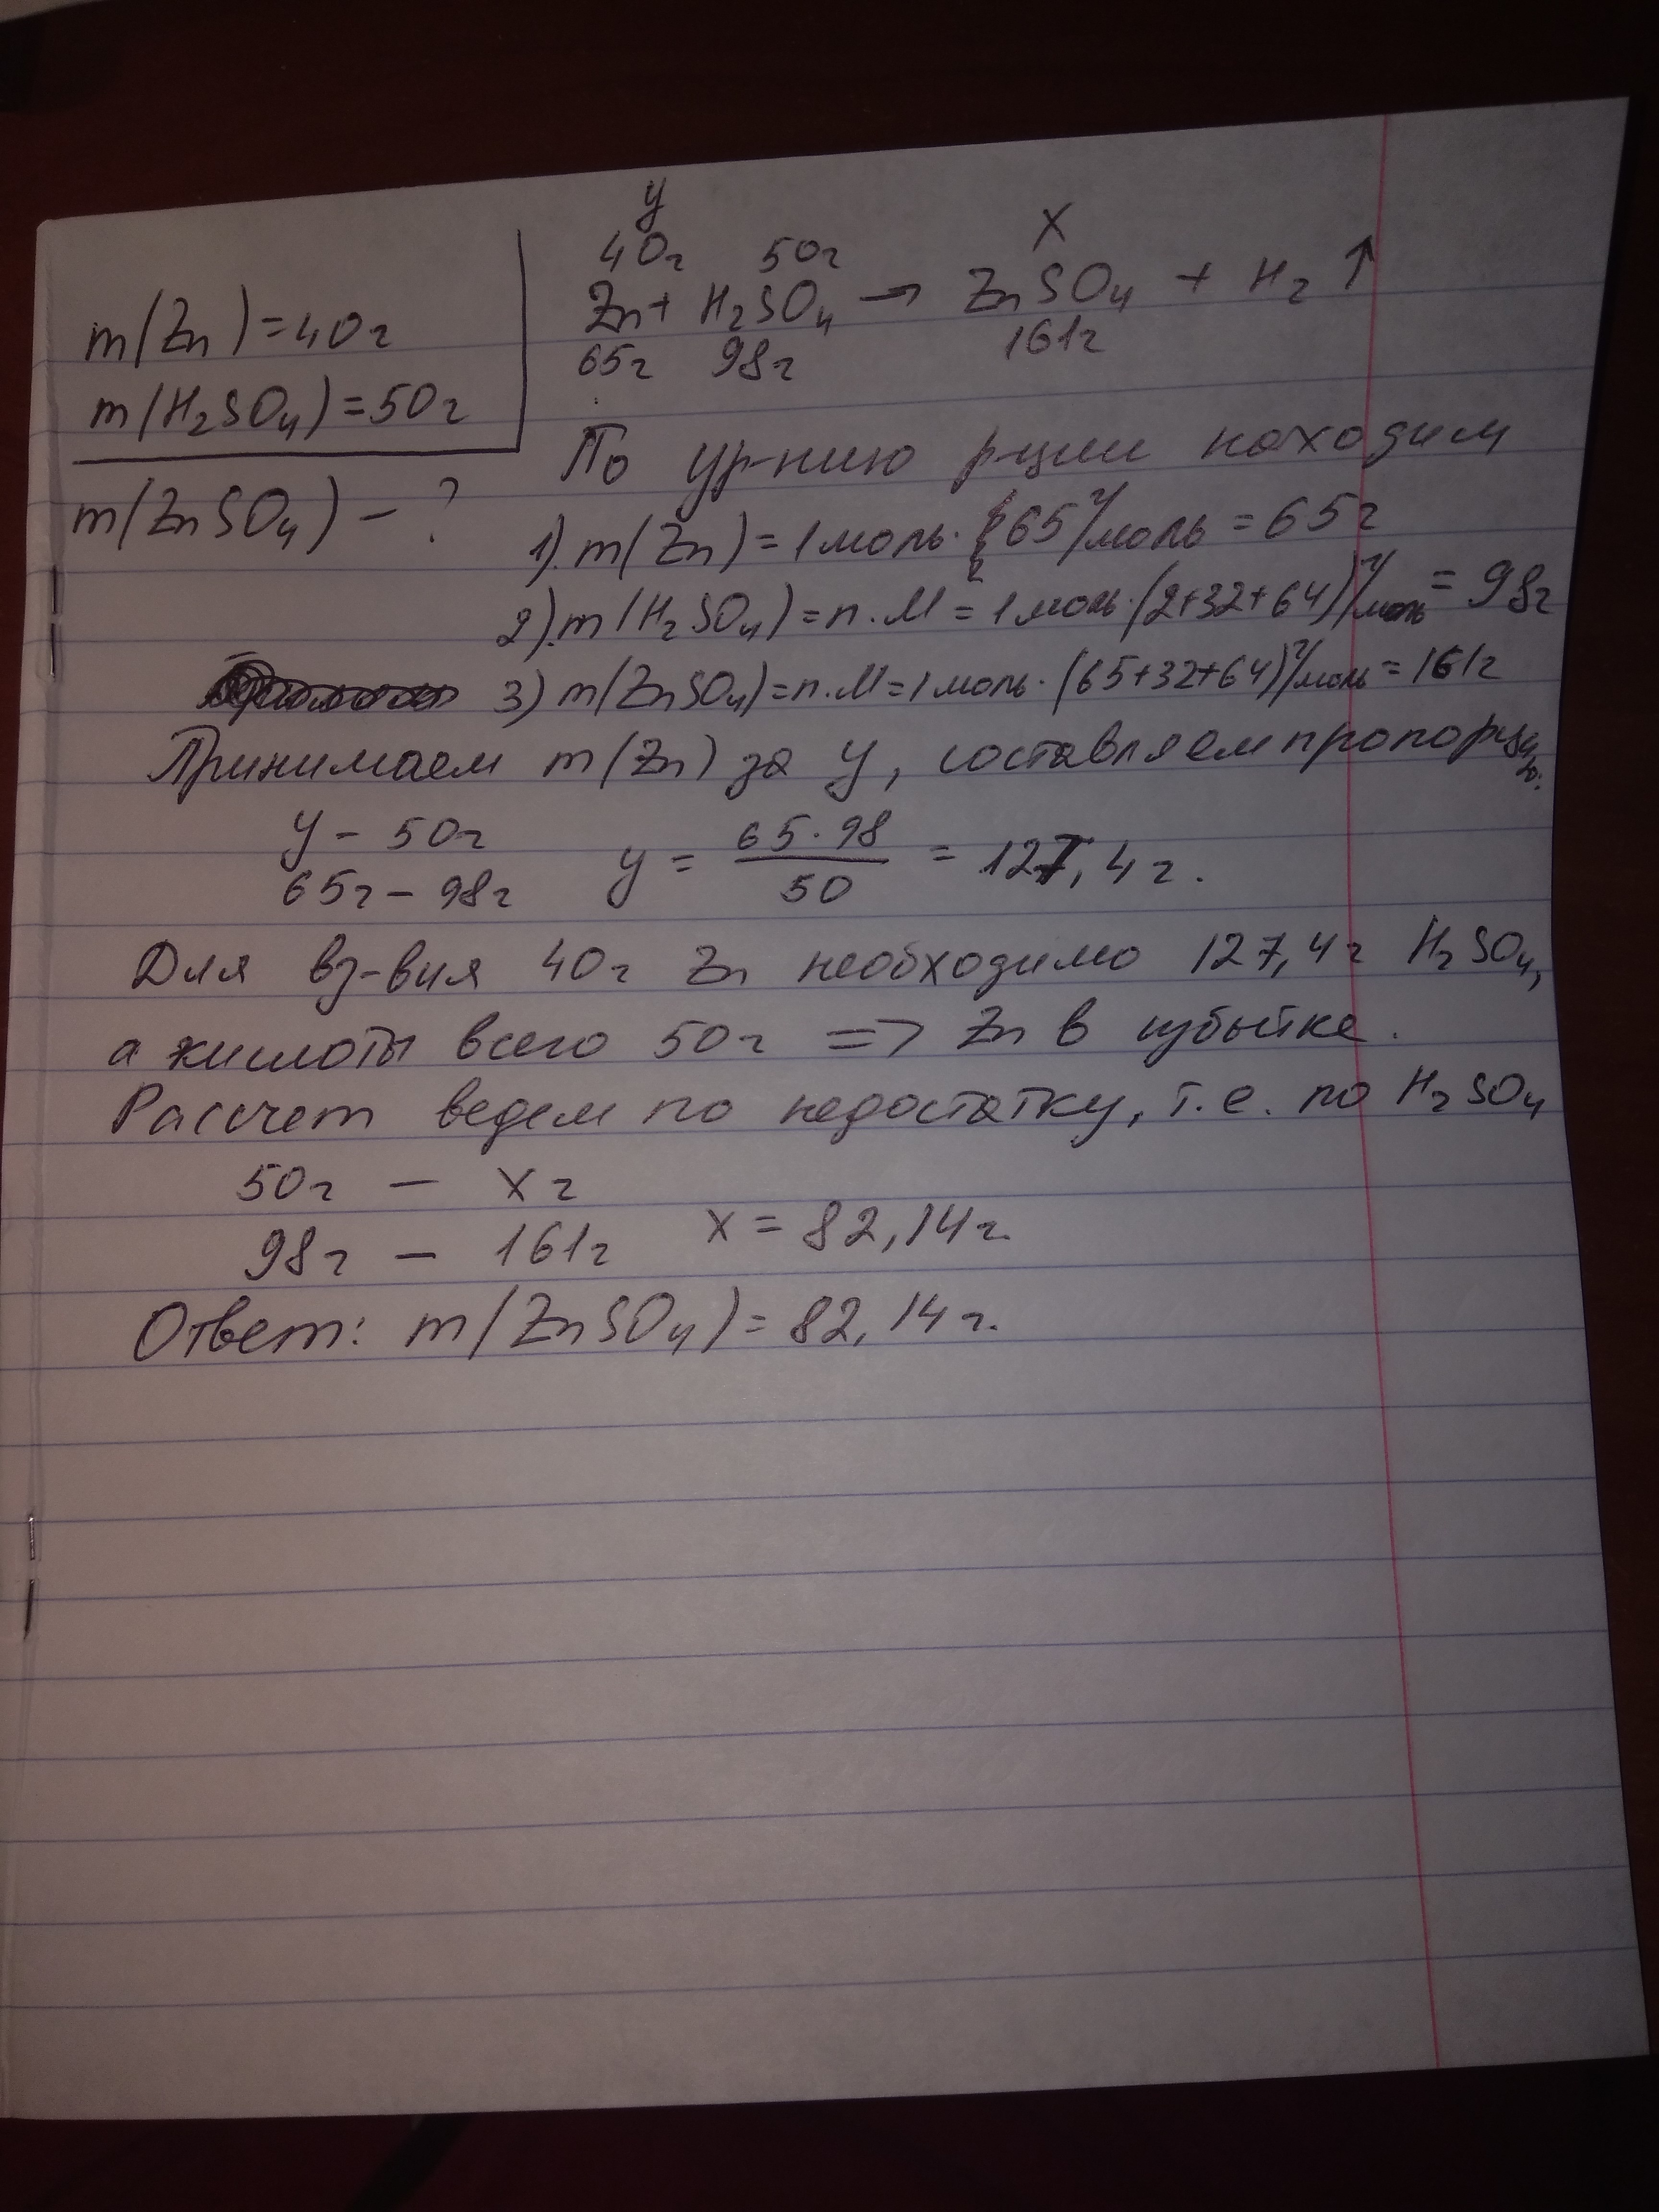 y
40г 50г x
Zn + H₂SO₄ → ZnSO₄ + H₂ ↑
65г 98г 161г
m(Zn) = 40г
m(H₂SO₄) = 50г
m(ZnSO₄) - ?
По ур-нию р-ции находим
1). m(Zn) = 1 моль · 65 г/моль = 65г
2). m(H₂SO₄) = n · M = 1 моль · (2+32+64) г/моль = 98г
3) m(ZnSO₄) = n · M = 1 моль · (65+32+64) г/моль = 161г
Принимаем m(Zn) за y, составляем пропорцию:
y - 50г
65г - 98г
y = 65 · 98 / 50 = 127,4 г.
Для вз-вия 40г Zn необходимо 127,4г H₂SO₄,
а кислоты всего 50г => Zn в избытке.
Рассчет ведем по недостатку, т.е. по H₂SO₄
50г — x г
98г — 161г
x = 82,14г.
Ответ: m(ZnSO₄) = 82,14г.